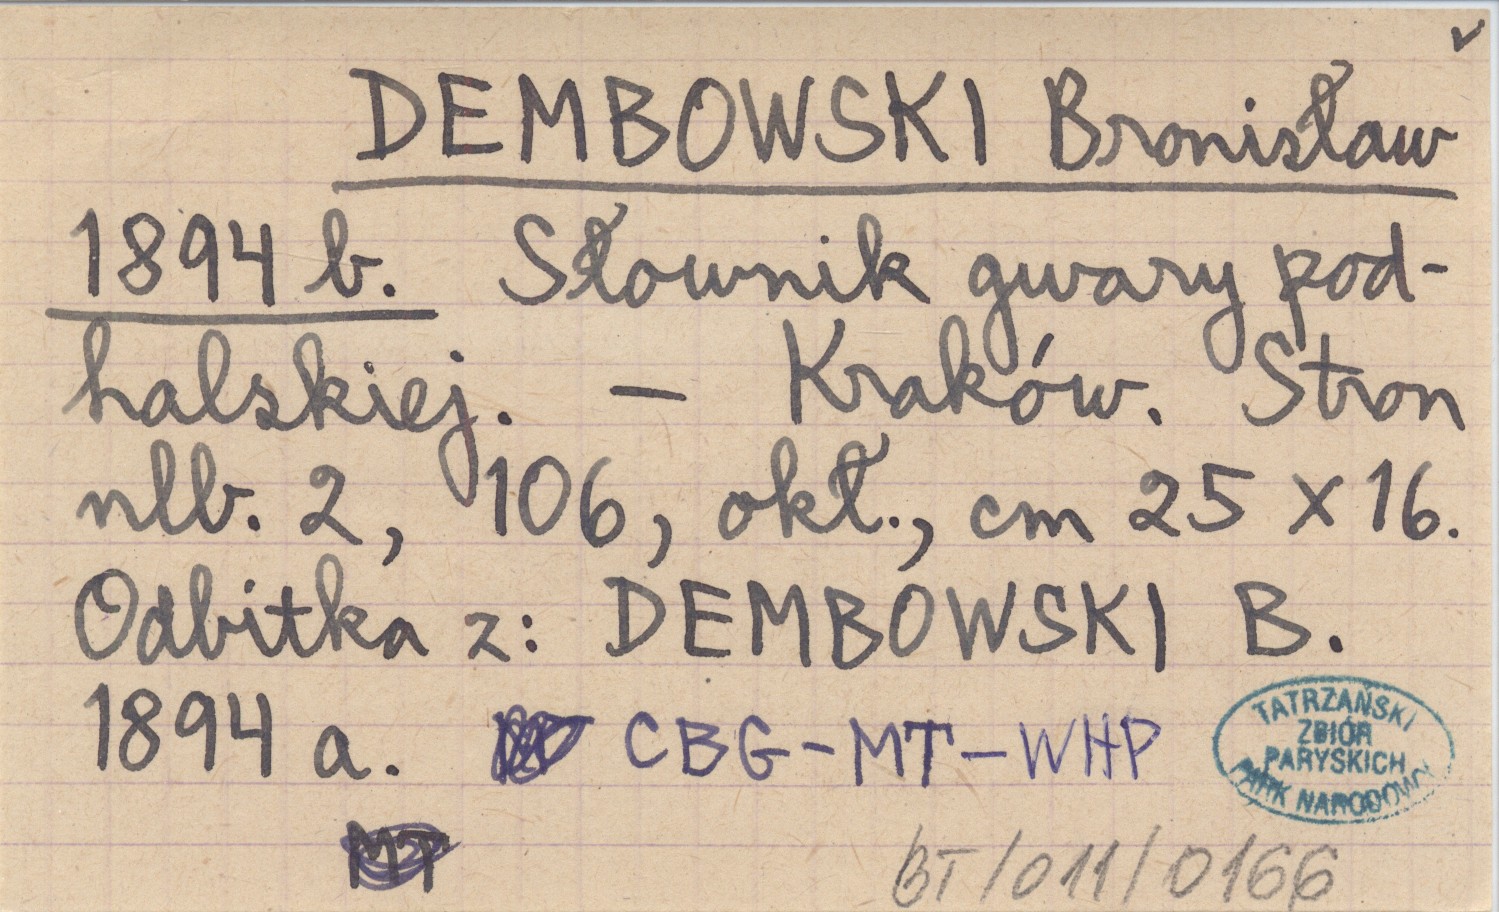 DEMBOWSKI Bronisław
1894 b. Słownik gwary pod-
halskiej. — Kraków. Stron
nlb. 2, 106, okł., cm 25 x 16.
Odbitka z: DEMBOWSKI B.
1894 a. CBG-MT-WHP
TATRZAŃSKI
ZBIÓR
PARYSKICH
PARK NARODOWY
MT
BT/011/0166